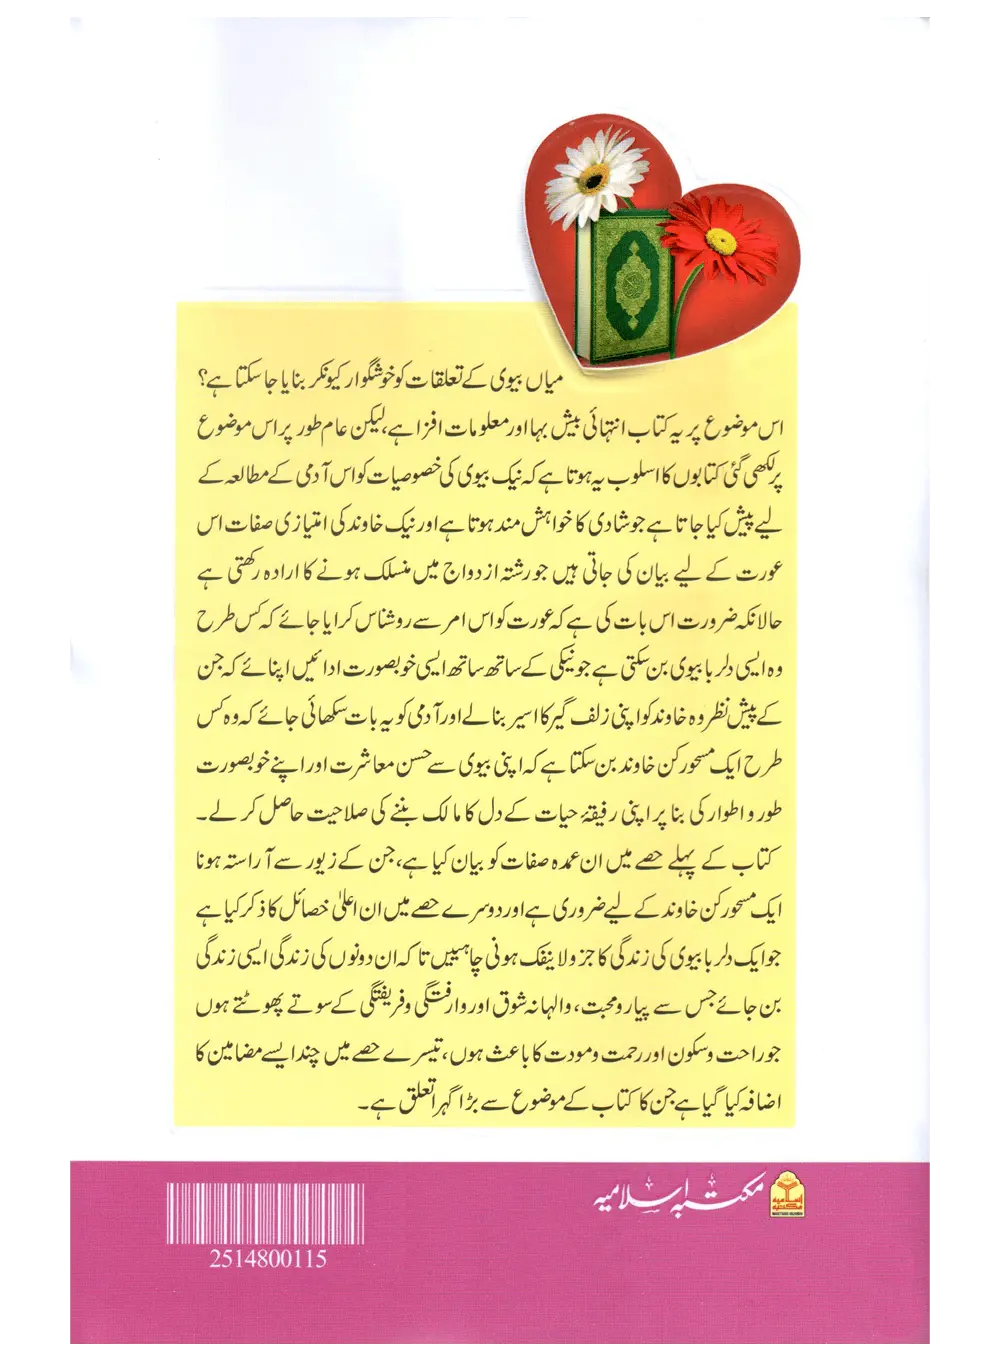 میاں بیوی کے تعلقات کو خوشگوار کیونکر بنایا جا سکتا ہے؟
اس موضوع پر یہ کتاب انتہائی بیش بہا اور معلومات افزا ہے، لیکن عام طور پر اس موضوع
پر لکھی گئی کتابوں کا اسلوب یہ ہوتا ہے کہ نیک بیوی کی خصوصیات کو اس آدمی کے مطالعہ کے
لیے پیش کیا جاتا ہے جو شادی کا خواہش مند ہوتا ہے اور نیک خاوند کی امتیازی صفات اس
عورت کے لیے بیان کی جاتی ہیں جو رشتہ ازدواج میں منسلک ہونے کا ارادہ رکھتی ہے
حالانکہ ضرورت اس بات کی ہے کہ عورت کو اس امر سے روشناس کرایا جائے کہ کس طرح
وہ ایسی دلربا بیوی بن سکتی ہے جو نیکی کے ساتھ ساتھ ایسی خوبصورت ادائیں اپنائے کہ جن
کے پیش نظر وہ خاوند کو اپنی زلف گیر کا اسیر بنا لے اور آدمی کو یہ بات سکھائی جائے کہ وہ کس
طرح ایک مسحور کن خاوند بن سکتا ہے کہ اپنی بیوی سے حسن معاشرت اور اپنے خوبصورت
طور و اطوار کی بنا پر اپنی رفیقۂ حیات کے دل کا مالک بننے کی صلاحیت حاصل کر لے۔
کتاب کے پہلے حصے میں ان عمدہ صفات کو بیان کیا ہے، جن کے زیور سے آراستہ ہونا
ایک مسحور کن خاوند کے لیے ضروری ہے اور دوسرے حصے میں ان اعلیٰ خصائل کا ذکر کیا ہے
جو ایک دلربا بیوی کی زندگی کا جزو لاینفک ہونی چاہییں تاکہ ان دونوں کی زندگی ایسی زندگی
بن جائے جس سے پیار و محبت، والہانہ شوق اور وارفتگی و فریفتگی کے سوتے پھوٹتے ہوں
جو راحت و سکون اور رحمت و مودت کا باعث ہوں، تیسرے حصے میں چند ایسے مضامین کا
اضافہ کیا گیا ہے جن کا کتاب کے موضوع سے بڑا گہرا تعلق ہے۔
مکتبہ اسلامیہ
2514800115